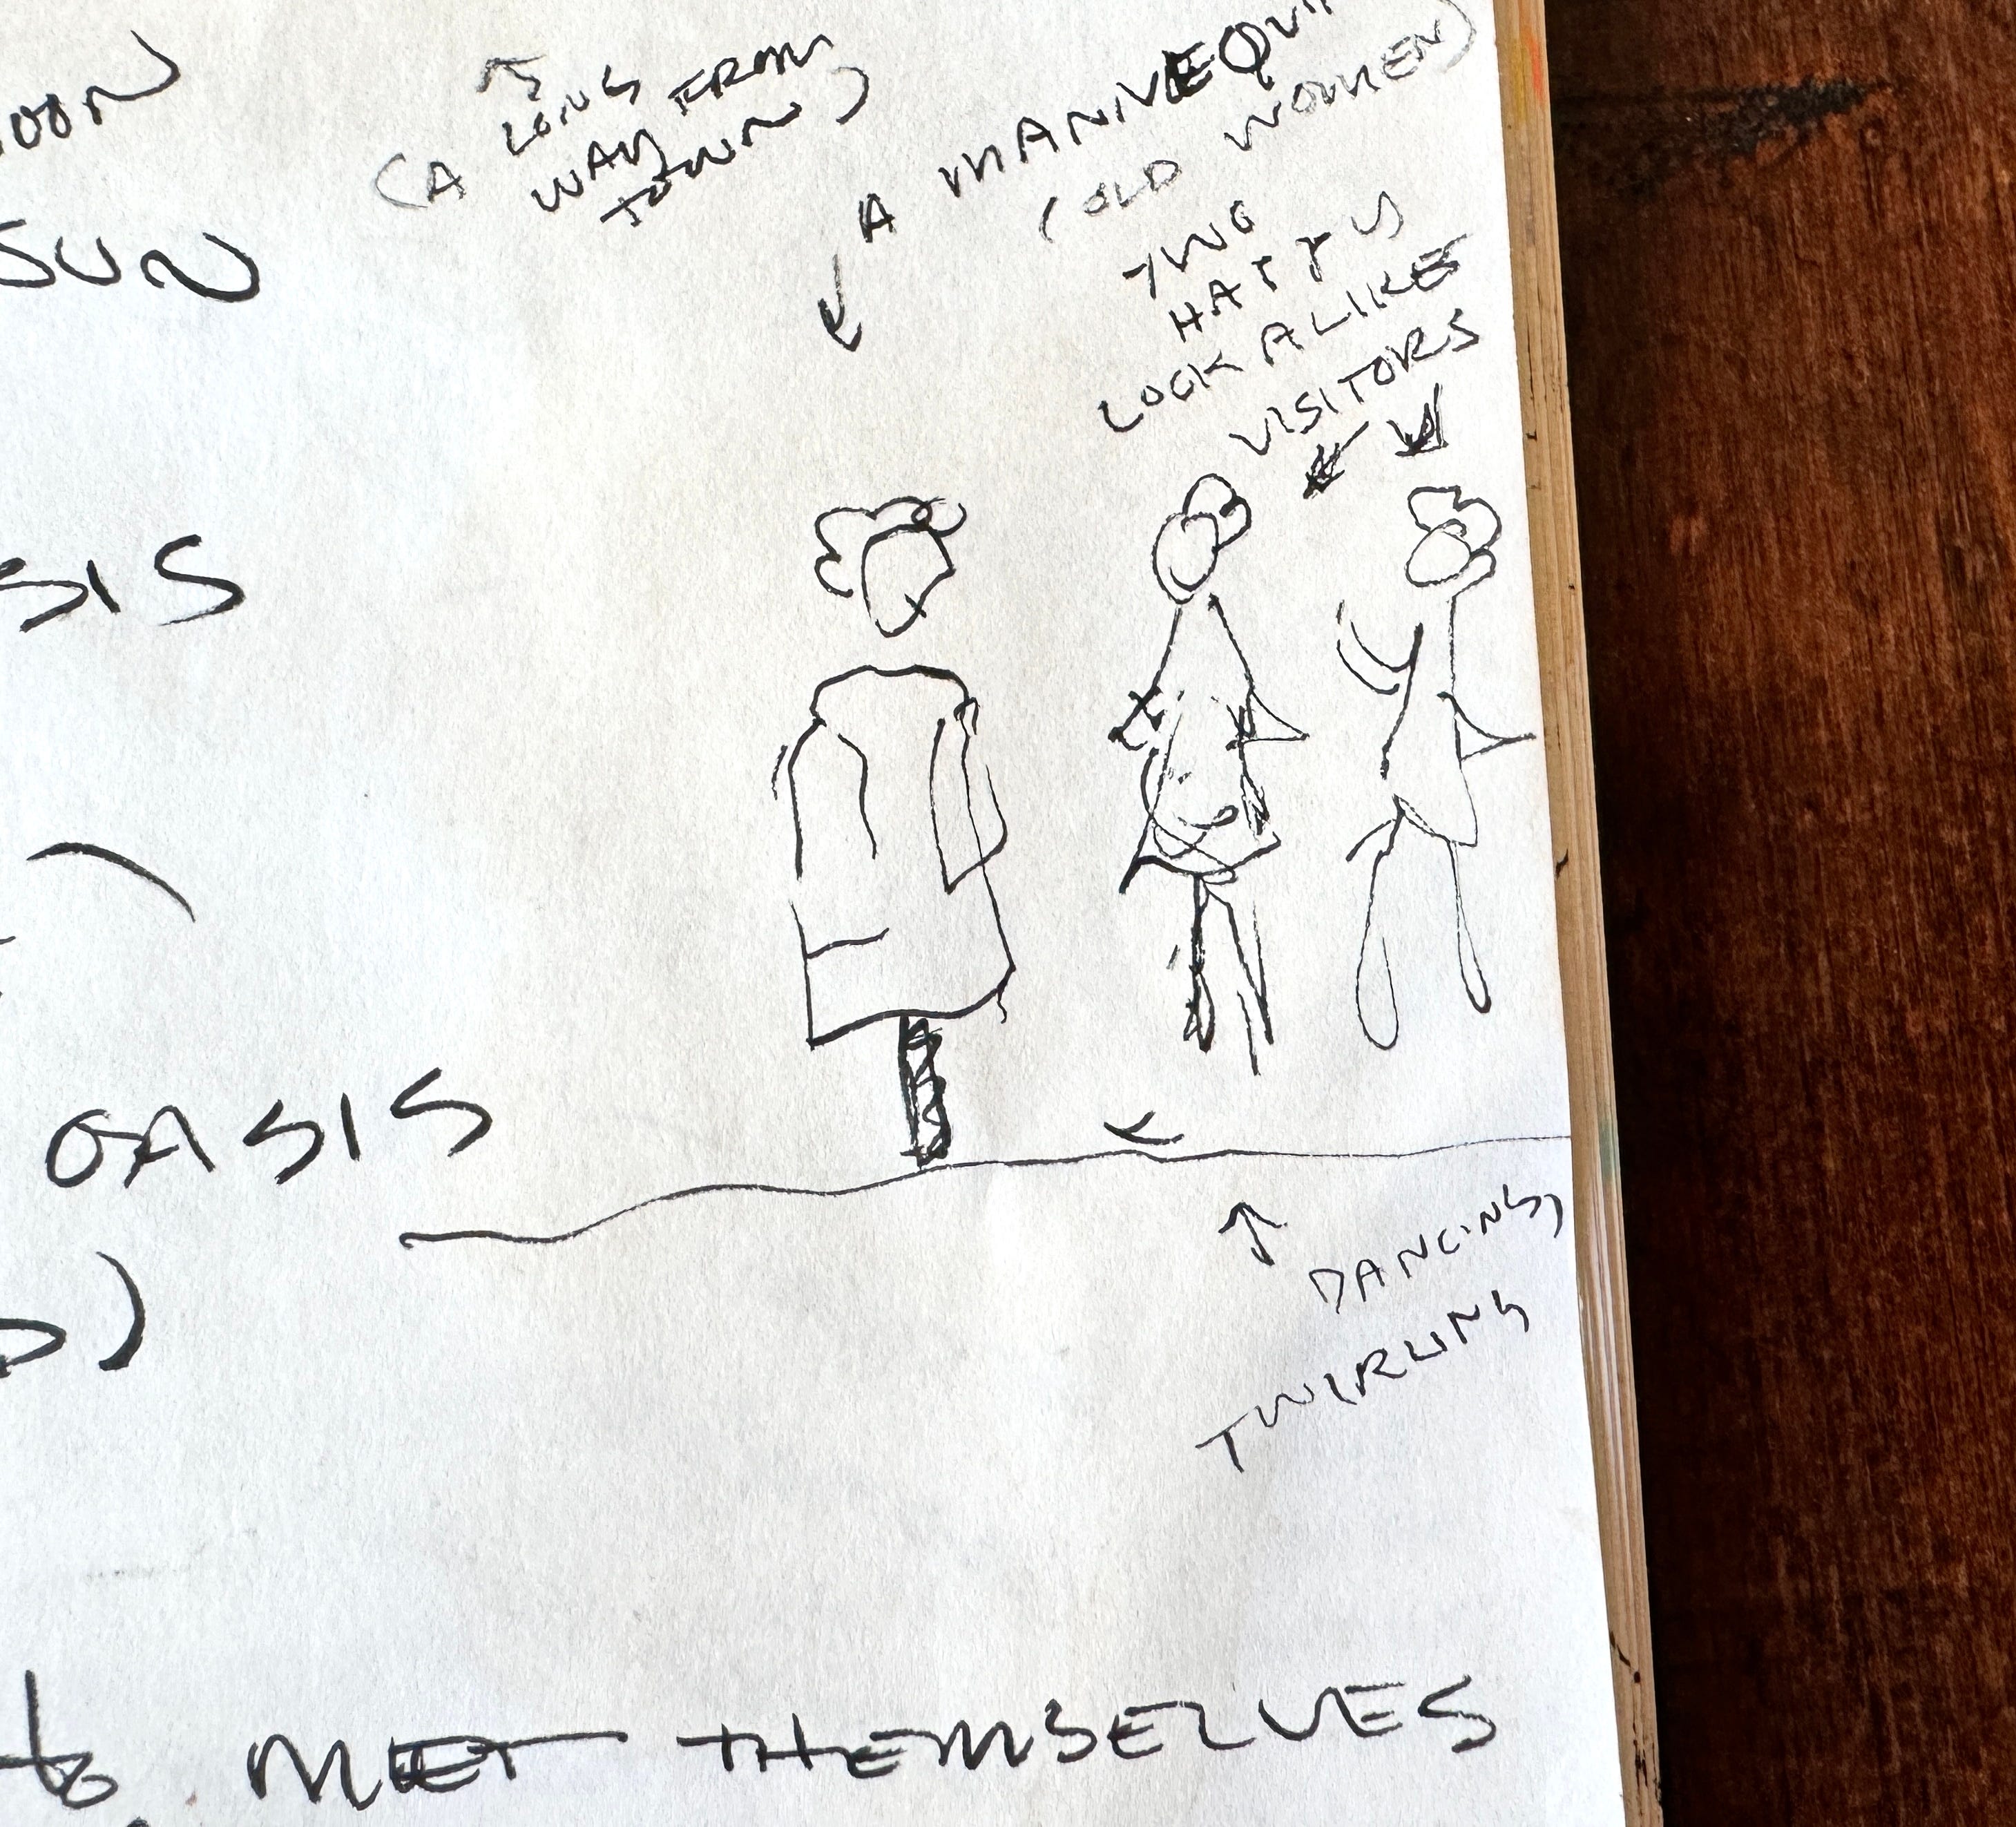 SUN
(A LONG
WAY FROM
TOWN)
A MANNEQUI
(OLD WOMEN)
TWO
HAPPY
LOOK ALIKE
VISITORS
SIS
OASIS
DANCING,
TWIRLING
to MEET THEMSELVES